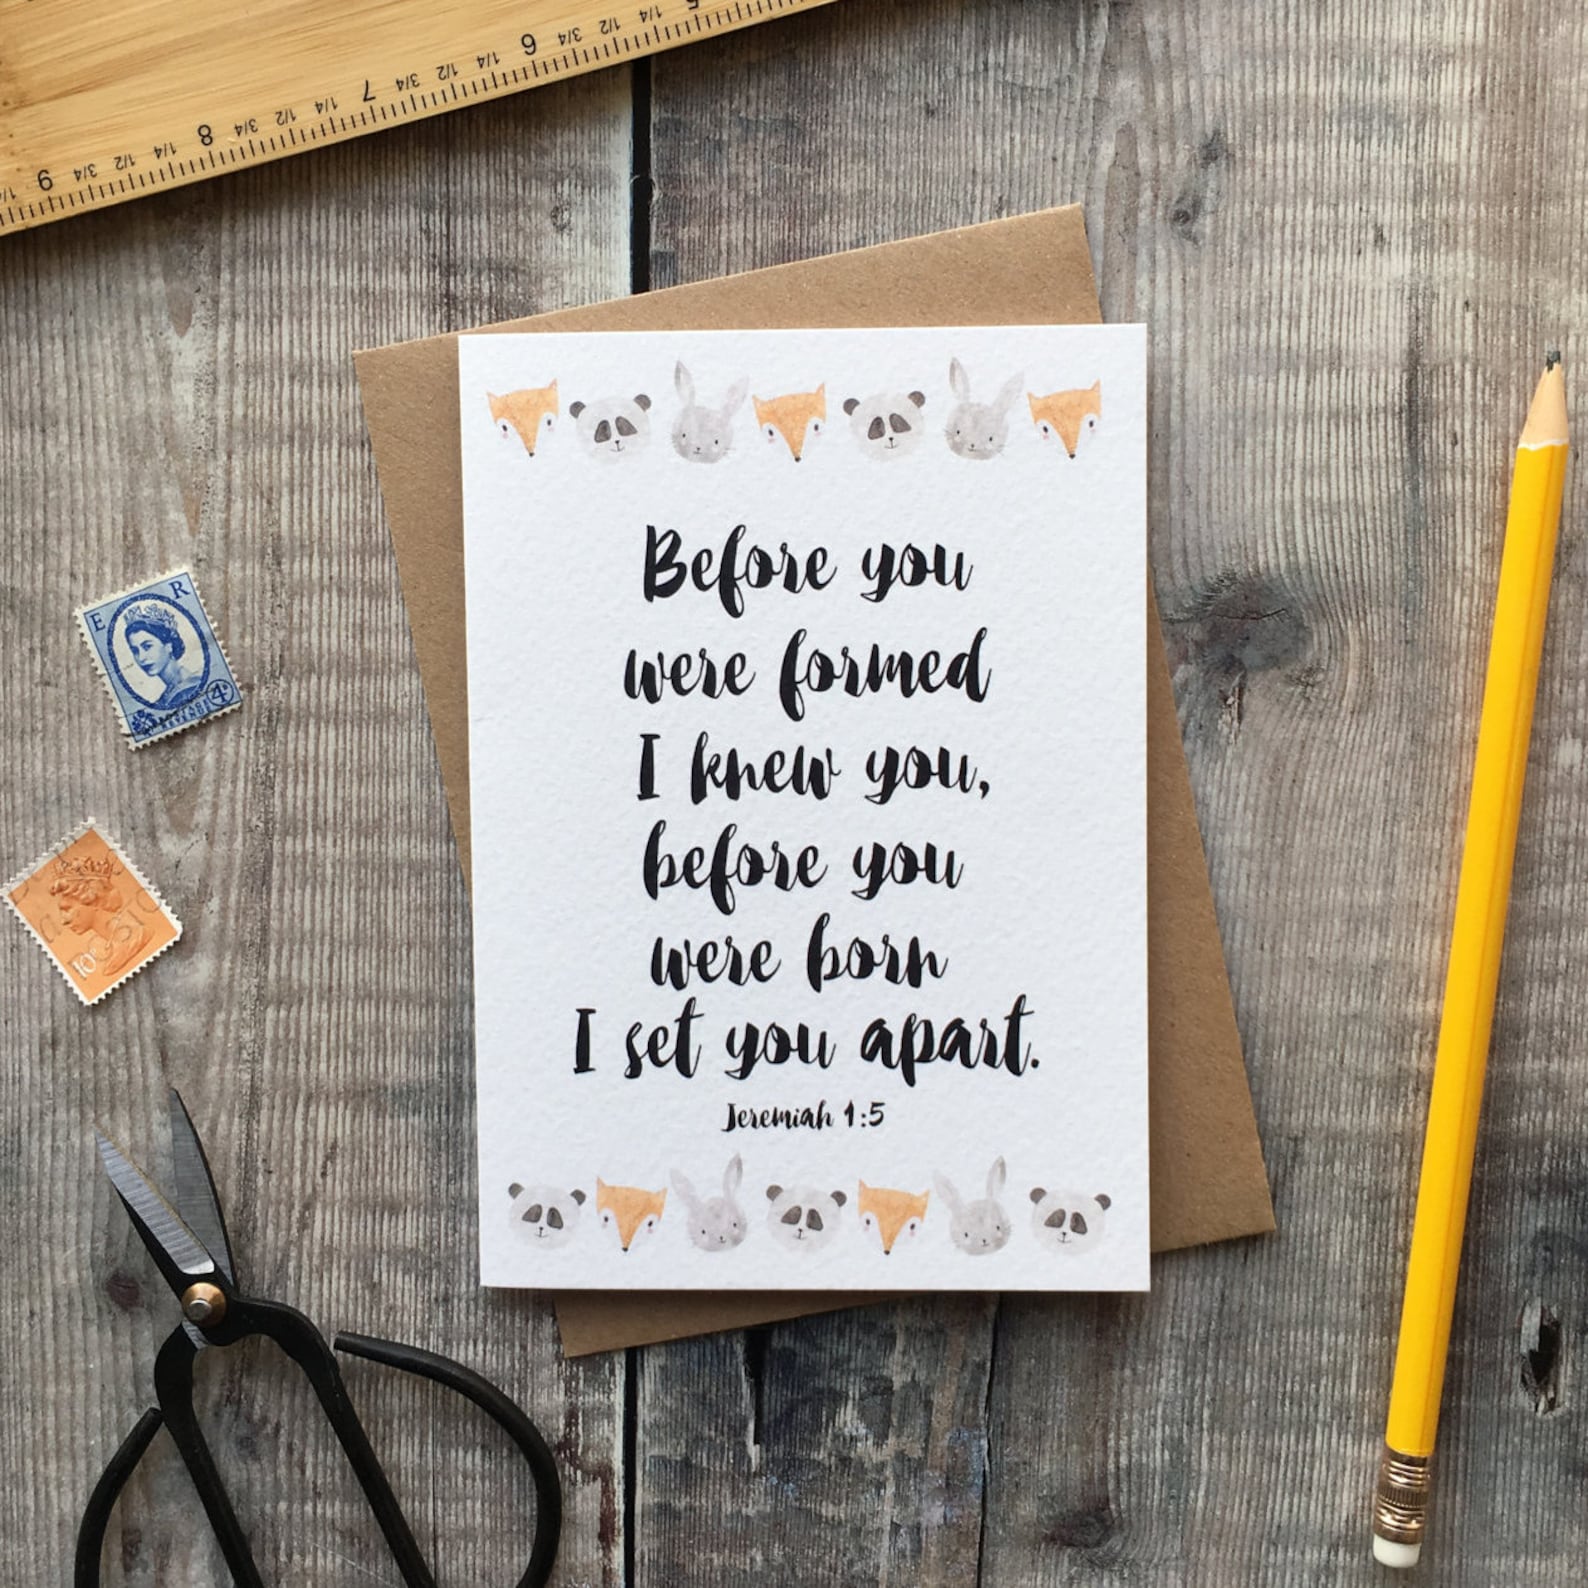 5 1/4 1/2 3/4 6 1/4 1/2 3/4 7 1/4 1/2 3/4 8 1/4 1/2 3/4 9 1/4
Before you
were formed
I knew you,
before you
were born
I set you apart.
Jeremiah 1:5
E R
4D
10P